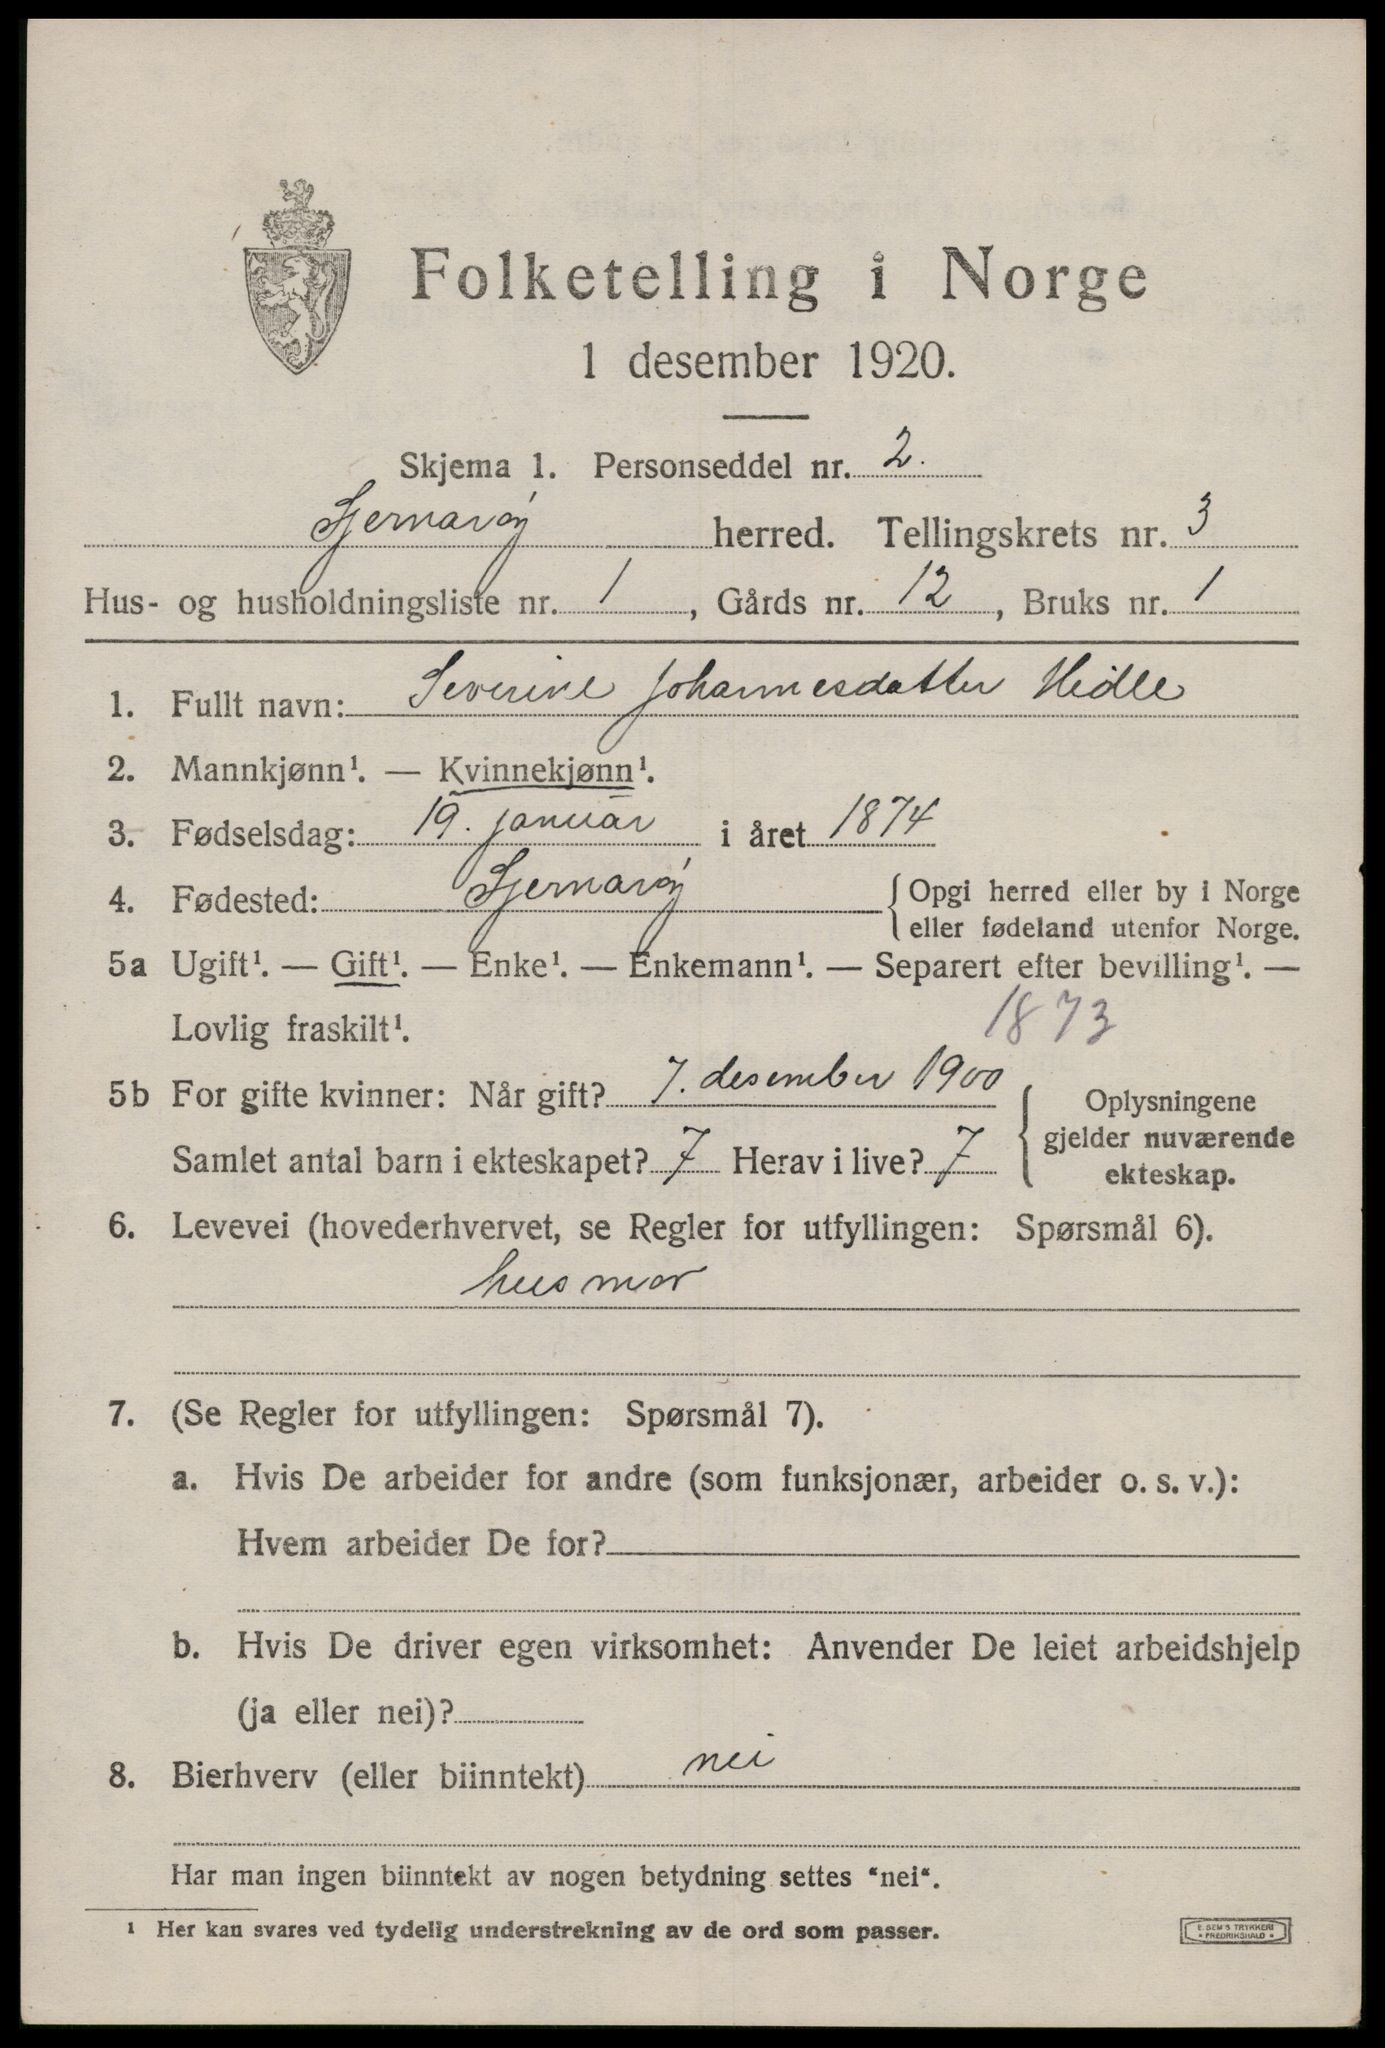 Folketelling i Norge
1 desember 1920.
Skjema 1. Personseddel nr. 2.
Sjernarøy herred. Tellingskrets nr. 3
Hus- og husholdningsliste nr. 1, Gårds nr. 12, Bruks nr. 1
1. Fullt navn: Severine Johannesdatter Hidle
2. Mannkjønn¹. — Kvinnekjønn¹.
3. Fødselsdag: 19. januar i året 1874
4. Fødested: Sjernarøy {Opgi herred eller by i Norge
eller fødeland utenfor Norge.
5a Ugift¹. — Gift¹. — Enke¹. — Enkemann¹. — Separert efter bevilling¹. —
Lovlig fraskilt¹. 1873
5b For gifte kvinner: Når gift? 7. desember 1900
Samlet antal barn i ekteskapet? 7 Herav i live? 7
{Oplysningene
gjelder nuværende
ekteskap.
6. Levevei (hovederhvervet, se Regler for utfyllingen: Spørsmål 6).
husmor
7. (Se Regler for utfyllingen: Spørsmål 7).
a. Hvis De arbeider for andre (som funksjonær, arbeider o. s. v.):
Hvem arbeider De for?
b. Hvis De driver egen virksomhet: Anvender De leiet arbeidshjelp
(ja eller nei)?
8. Bierhverv (eller biinntekt) nei
Har man ingen biinntekt av nogen betydning settes "nei".
¹ Her kan svares ved tydelig understrekning av de ord som passer.
E. SEM'S TRYKKERI
FREDRIKSHALD